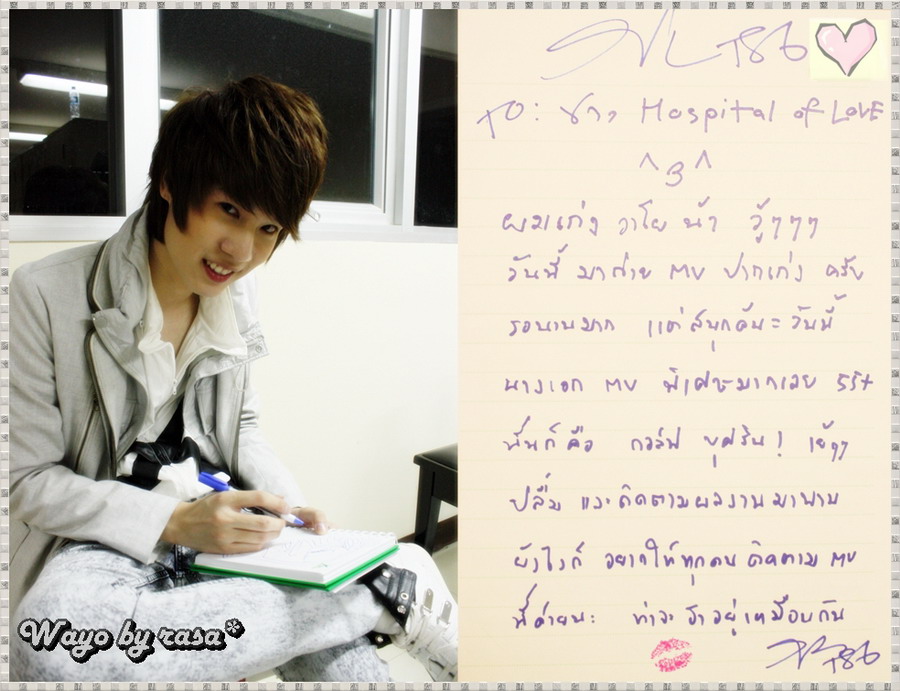 T86
TO: ชาว Hospital of LovE
^3^
ผมเก่ง วาโย น้า วู้ๆๆๆ
วันนี้ มาถ่าย MV ปากเก่ง ครับ
รอนานมาก แต่สนุกดีนะวันนี้
นางเอก MV พิเศษมากเลย 55+
นั่นก็คือ กอล์ฟ บุศริน! เย้ๆๆ
ปลื้ม และติดตามผลงานมานาน
ยังไงก็ อยากให้ทุกคน ติดตาม MV
นี้ด้วยนะ น่าจะ ฮาอยู่เหมือนกัน
T86
Wayo by rasa*